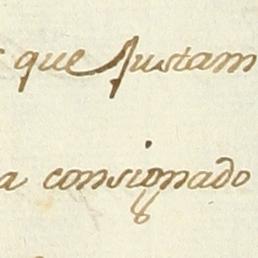 que Justam
a consignado